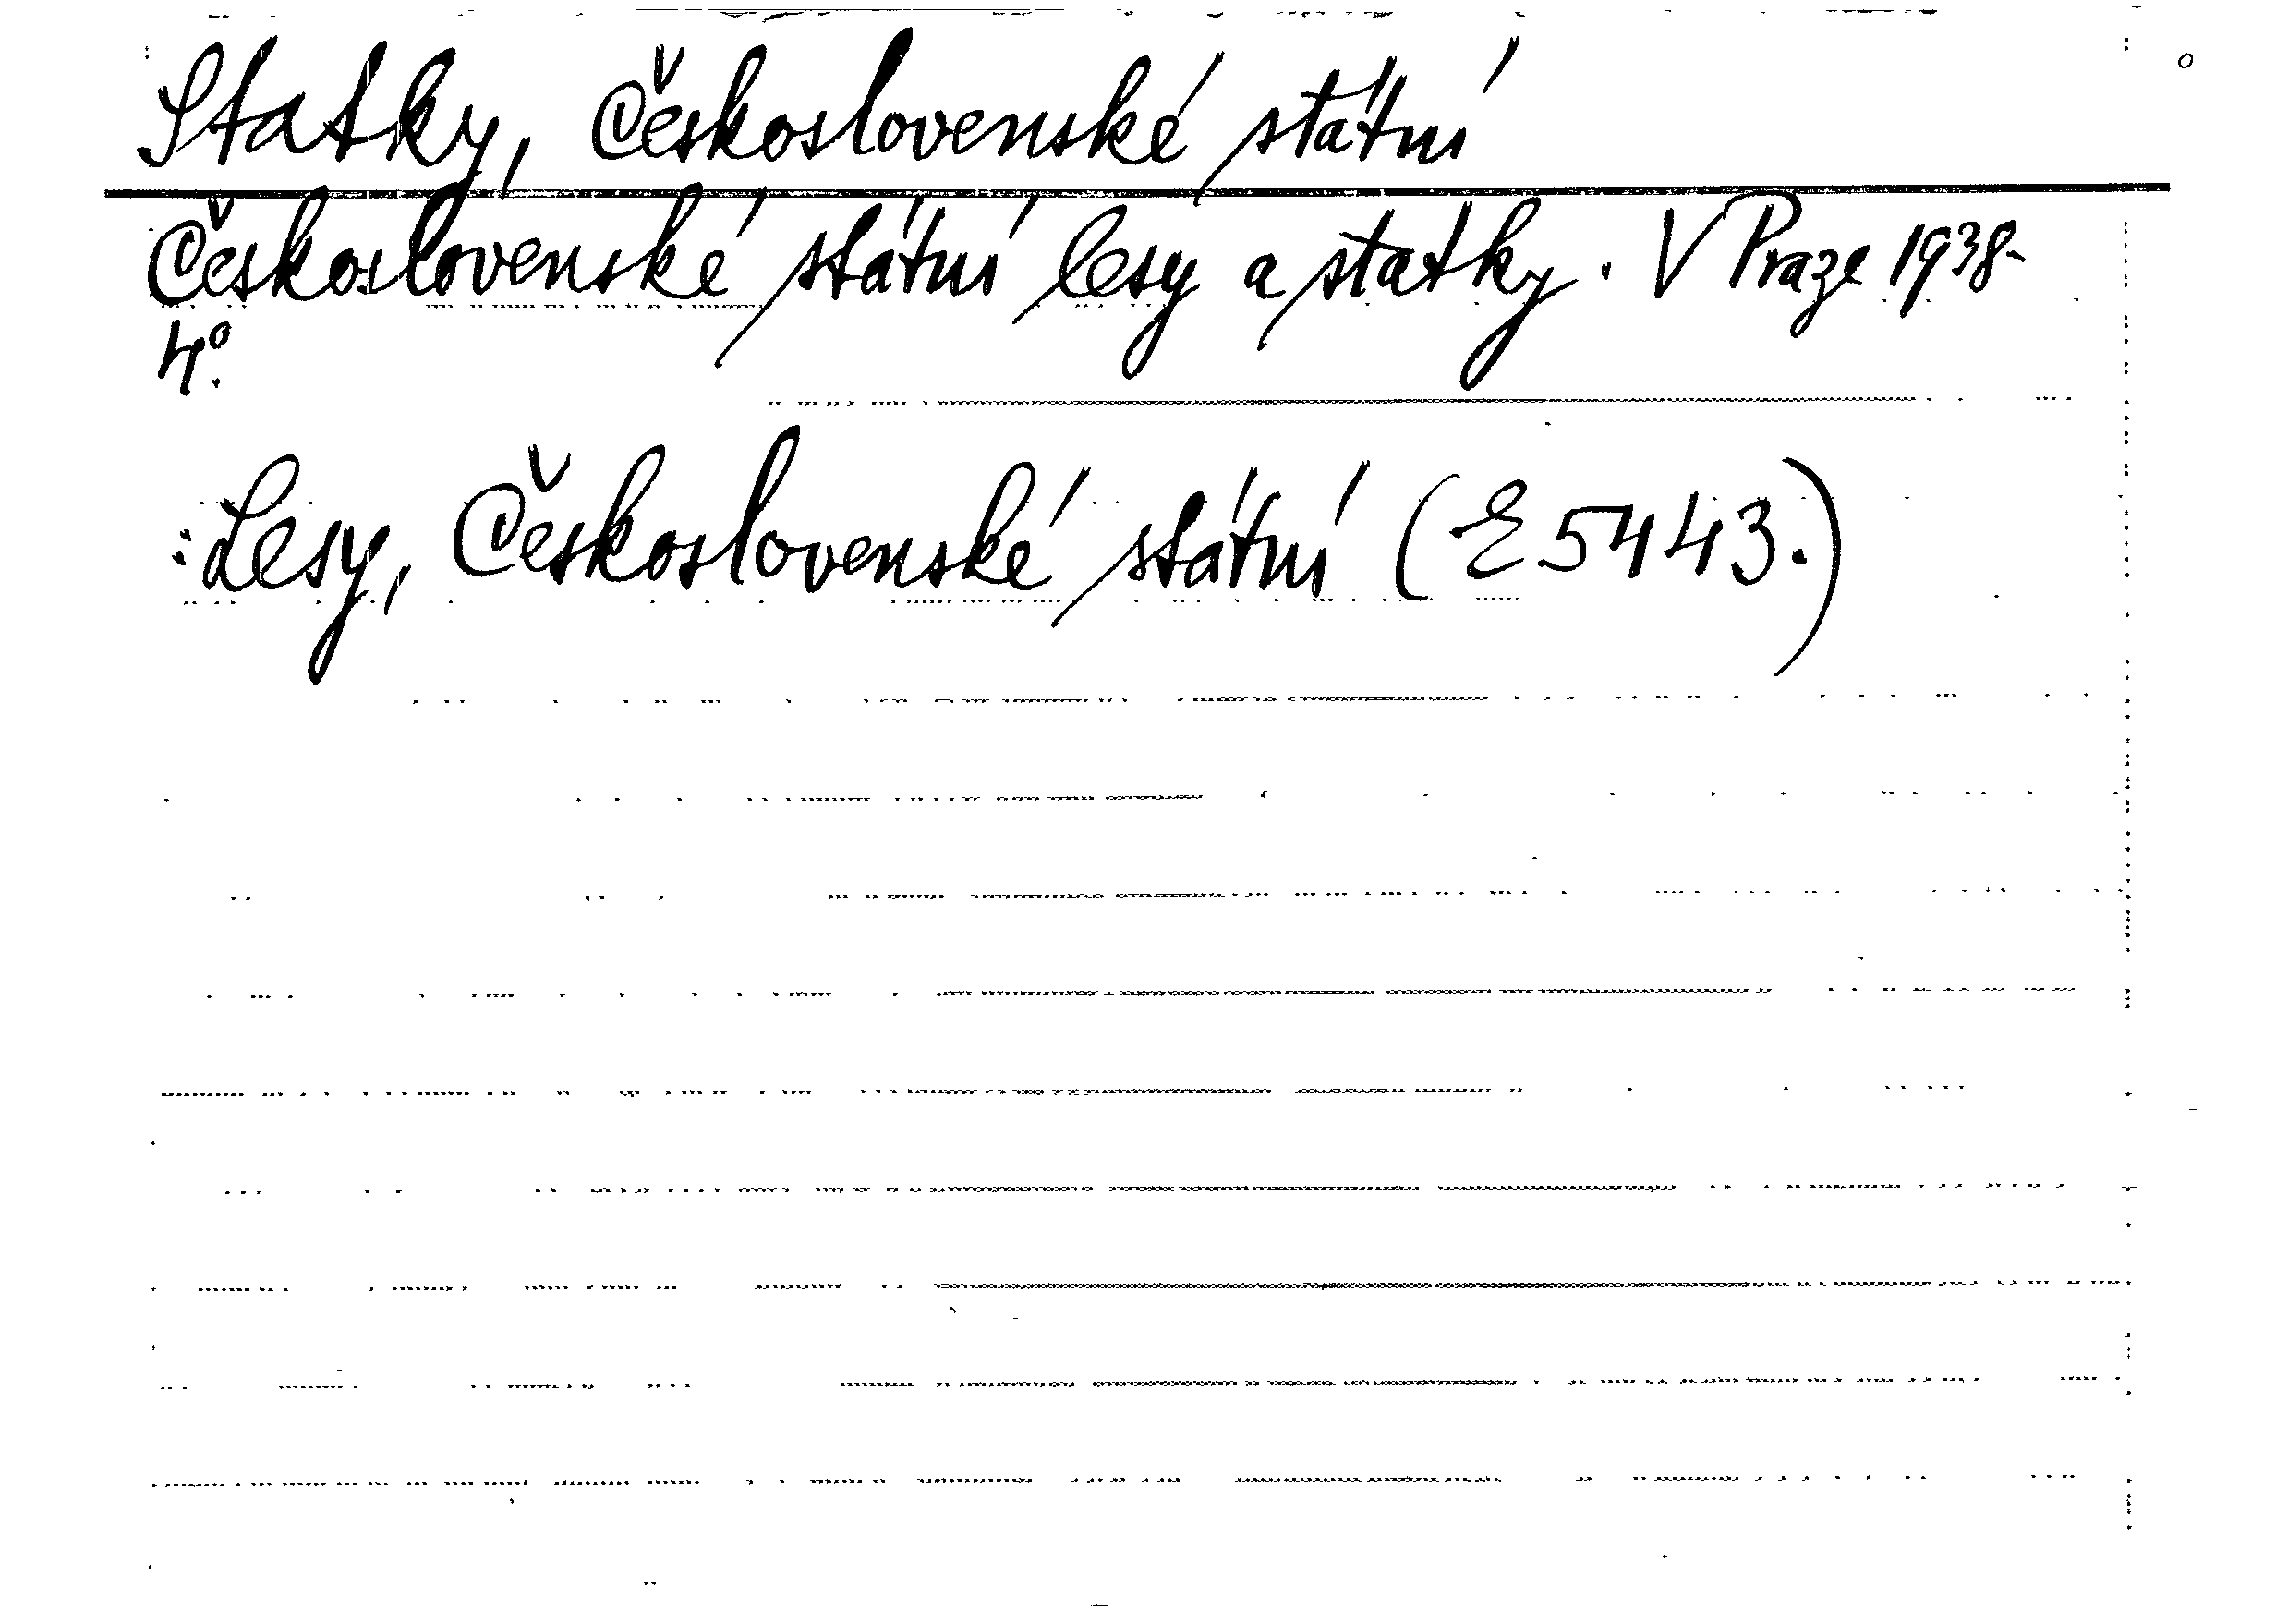 Statky, Československé státní
Československé státní lesy a statky. V Praze 1938-
4°.
:Lesy, Československé státní (E 5443.)